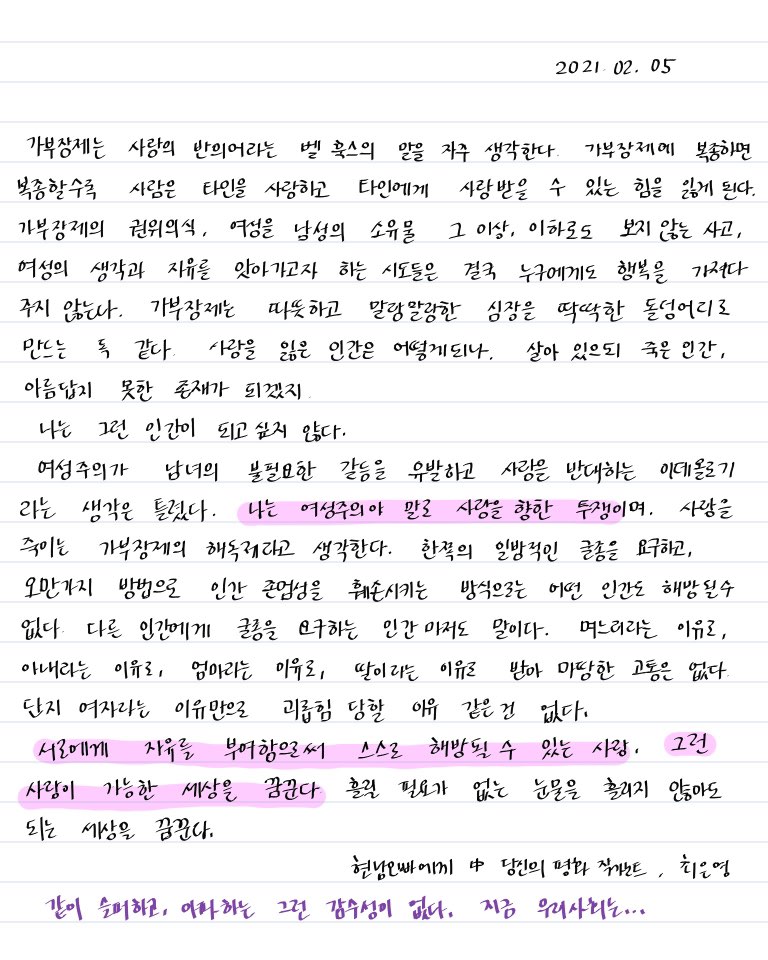 2021. 02. 05
가부장제는 사랑의 반의어라는 벨 훅스의 말을 자주 생각한다. 가부장제에 복종하면
복종할수록 사람은 타인을 사랑하고 타인에게 사랑받을 수 있는 힘을 잃게 된다.
가부장제의 권위의식, 여성을 남성의 소유물 그 이상, 이하로도 보지 않는 사고,
여성의 생각과 자유를 앗아가고자 하는 시도들은 결국 누구에게도 행복을 가져다
주지 않는다. 가부장제는 따뜻하고 말랑말랑한 심장을 딱딱한 돌덩어리로
만드는 독 같다. 사랑을 잃은 인간은 어떻게되나. 살아 있으되 죽은 인간,
아름답지 못한 존재가 되겠지.
나는 그런 인간이 되고 싶지 않다.
여성주의가 남녀의 불필요한 갈등을 유발하고 사랑을 반대하는 이데올로기
라는 생각은 틀렸다. 나는 여성주의야 말로 사랑을 향한 투쟁이며. 사랑을
죽이는 가부장제의 해독제라고 생각한다. 한쪽의 일방적인 굴종을 요구하고,
오만가지 방법으로 인간 존엄성을 훼손시키는 방식으로는 어떤 인간도 해방될수
없다. 다른 인간에게 굴종을 요구하는 인간 마저도 말이다. 며느리라는 이유로,
아내라는 이유로, 엄마라는 이유로, 딸이라는 이유로 받아 마땅한 고통은 없다.
단지 여자라는 이유만으로 괴롭힘 당할 이유 같은건 없다.
서로에게 자유를 부여함으로써 스스로 해방될 수 있는 사랑. 그런
사랑이 가능한 세상을 꿈꾼다. 흘릴 필요가 없는 눈물을 흘리지 않아도
되는 세상을 꿈꾼다.
현남오빠에게 中 당신의 평화 작가노트, 최은영
같이 슬퍼하고, 아파하는 그런 감수성이 없다. 지금 우리사회는...